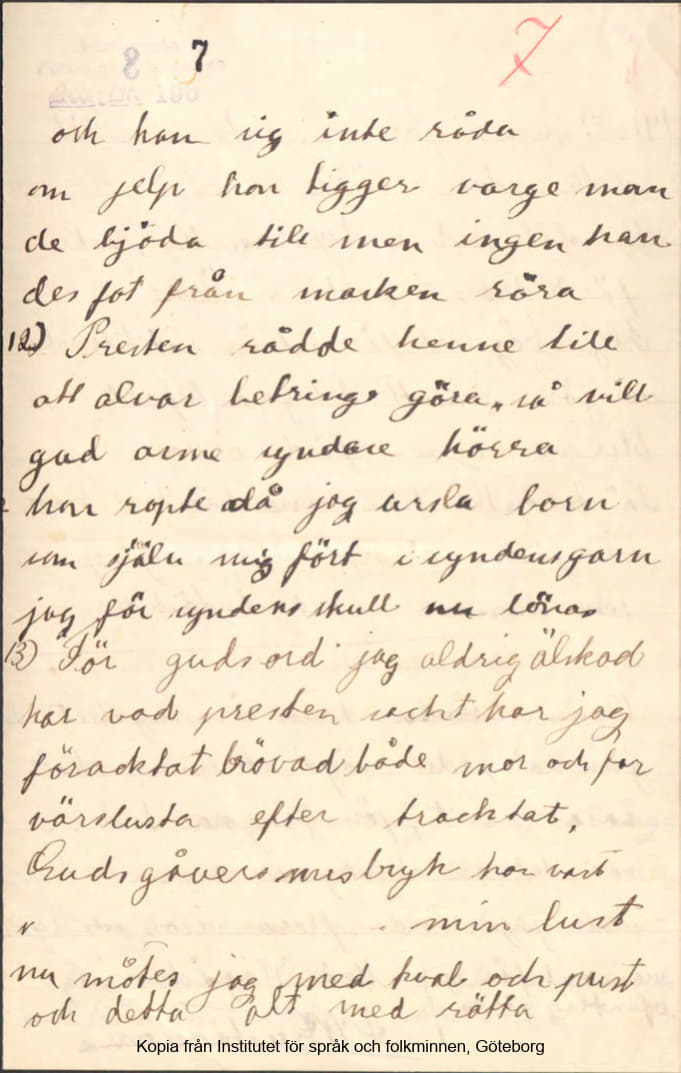 8 7 7
och han sig inte råda
om jelp hon tigger varge man
de bjöda till men ingen kan
des fot från marken röra
12) Presten rådde henne till
att alvar betring göra, så vill
gud arme syndare hörra
hon ropte då jag usla born
som själv mig fört i syndensgarn
jag för syndens skull nu lönas
13) För gudsord jag aldrig älskad
har vad presten sackt har jag
föracktat brövad både mor och far
värslusta efter tracktat,
Guds gåvers misbryk har vart
min lust
nu mötes jag med kval och pust
och detta alt med rätta
Kopia från Institutet för språk och folkminnen, Göteborg